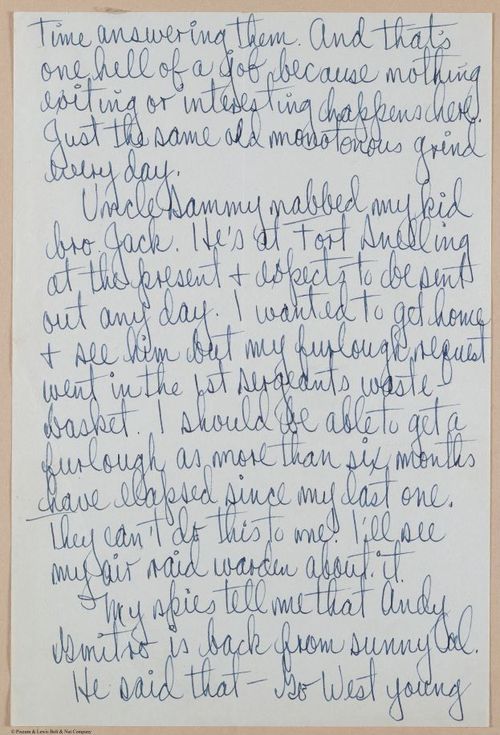 Time answering them. And that's
one hell of a job, because nothing
exiting or interesting happens here.
Just the same old monotonous grind
every day.
Uncle Sammy nabbed my kid
bro. Jack. He's at Fort Snelling
at the present + expects to be sent
out any day. I wanted to get home
+ see him but my furlough request
went in the 1st sergeants waste-
basket. I should be able to get a
furlough as more than six months
have elapsed since my last one.
They can't do this to me! I'll see
my air raid warden about it.
My spies tell me that Andy
is back from sunny Cal.
He said that - Go West young
© Pioram & Lewis Bolt & Nut Company